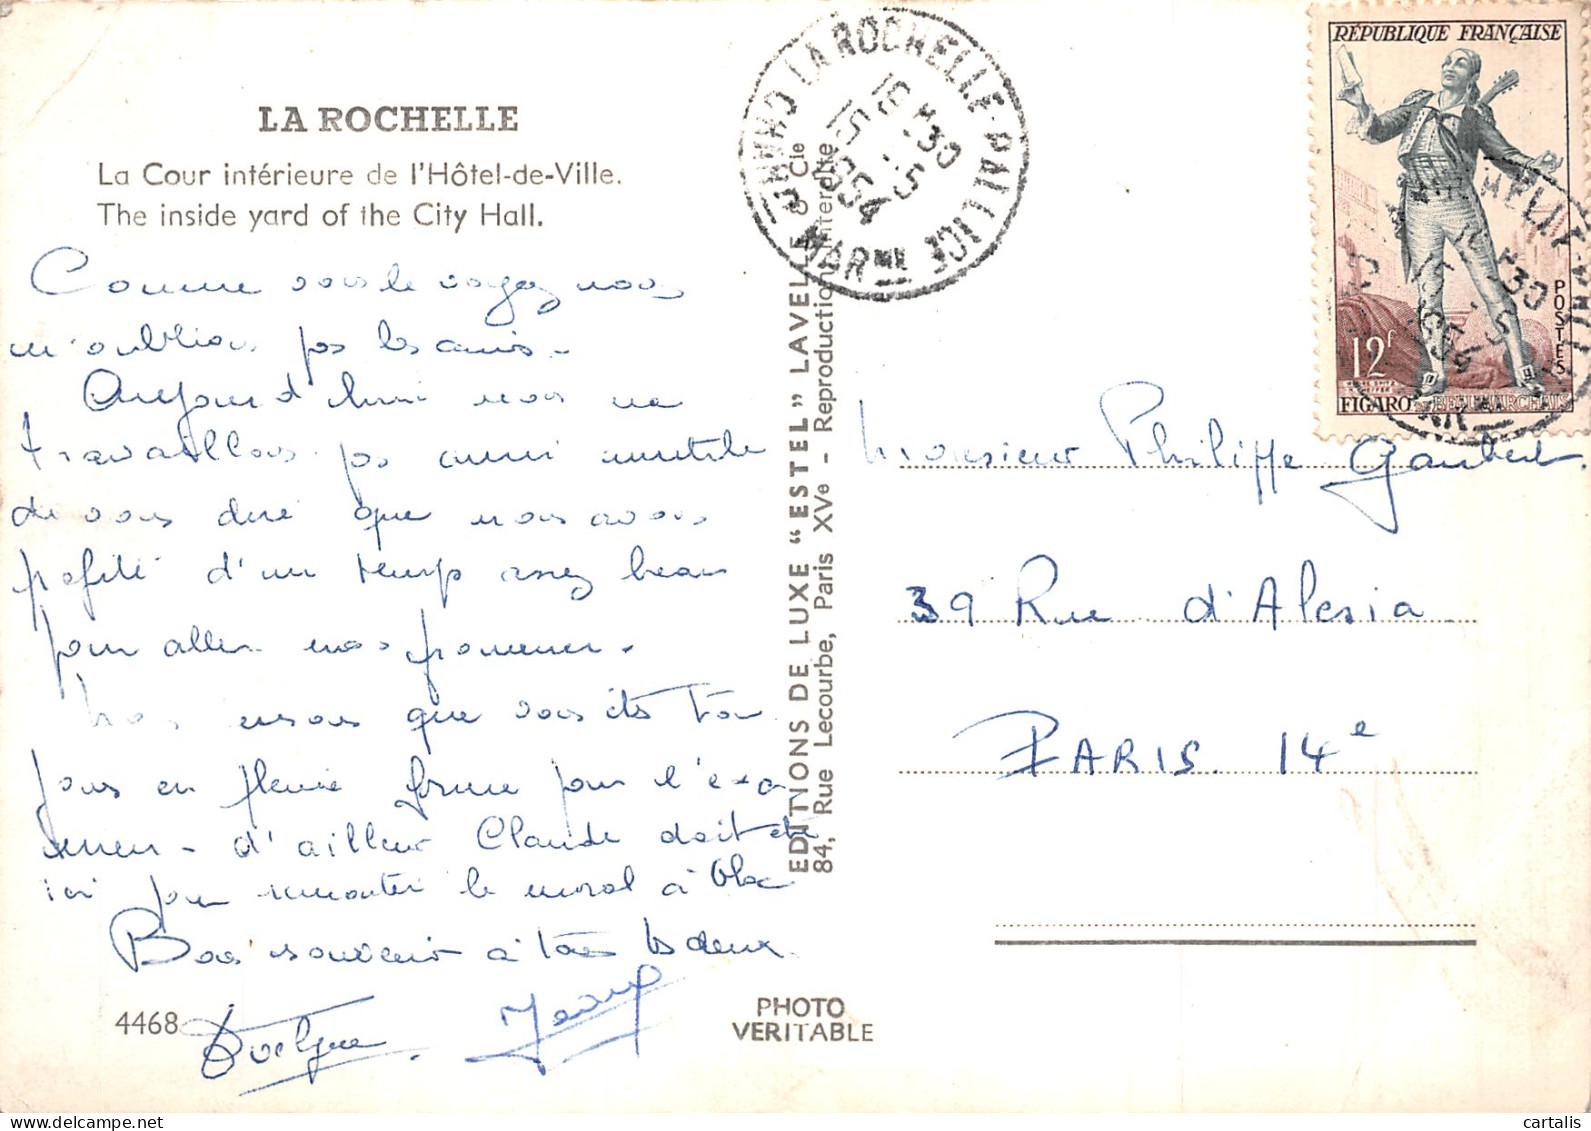 LA ROCHELLE
La Cour intérieure de l'Hôtel-de-Ville.
The inside yard of the City Hall.
Comme vous le voyez nous
n'oublions pas les amis -
Aujourd'hui nous ne
travaillons pas aussi inutile
de vous dire que nous avons
profité d'un temps assez beau
pour aller nous promener.
Nous pensons que vous êtes tou
jours en pleine forme pour l'exa
men - d'ailleurs Claude doit être
ici pour remonter le moral à bloc
Bons souvenirs à tous les deux
4468
PHOTO
VERITABLE
EDITIONS DE LUXE "ESTEL" LAVELLE & Cie
84, Rue Lecourbe, Paris XVe - Reproduction Interdite
LA ROCHELLE-PALLICE
CHAR MARME
16 H 30
15 - 5
1954
RÉPUBLIQUE FRANÇAISE
POSTES
12F
FIGARO - BEAUMARCHAIS
Monsieur Philippe Gaubert.
39 Rue d'Alesia
PARIS. 14e
cartalis
delcampe.net